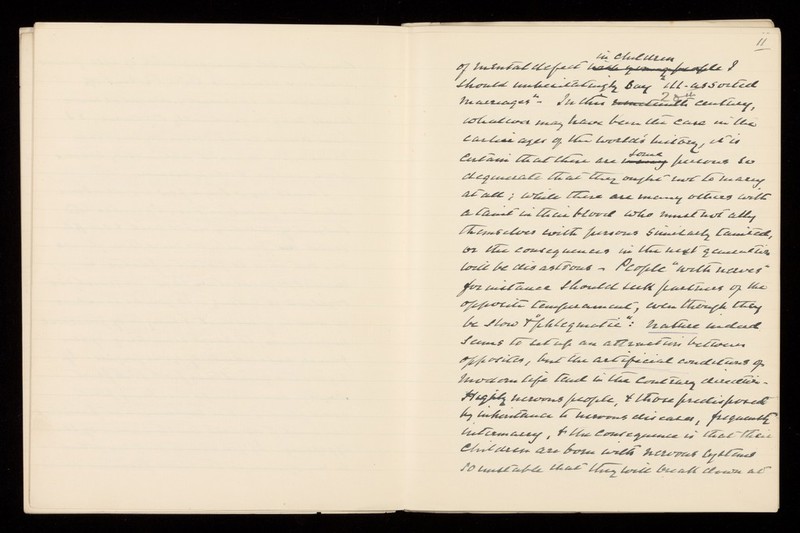 11
in children
of mental defect with young people I
should unhesitatingly say "ill-assorted
marriages". In this nineteenth 20th century,
whatever may have been the case in the
earlier ages of the world's history, it is
certain that there are many some persons so
degenerate that they ought not to marry
at all; while there are many others with
a taint in their blood who must not ally
themselves with persons similarly tainted,
or the consequences in the next generation
will be disastrous. People "with nerves"
for instance should seek partners of the
opposite temperament, even though they
be slow & "phlegmatic": Nature indeed
seems to set up an attraction between
opposites, but the artificial conditions of
modern life tend in the contrary direction.
Highly nervous people, & those predisposed
by inheritance to nervous diseases, frequently
intermarry, & the consequence is that their
children are born with nervous systems
so unstable that they will break down at